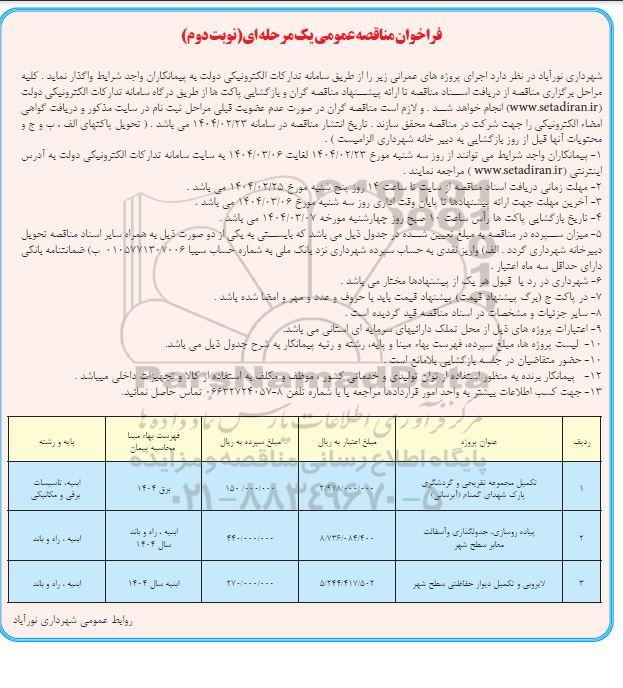 فراخوان مناقصه عمومی یک مرحله ای (نوبت دوم)
شهرداری نورآباد در نظر دارد اجرای پروژه های عمرانی زیر را از طریق سامانه تدارکات الکترونیکی دولت به پیمانکاران واجد شرایط واگذار نماید . کلیه
مراحل برگزاری مناقصه از دریافت اسناد مناقصه تا ارائه پیشنهاد مناقصه گران و بازگشایی پاکت ها از طریق درگاه سامانه تدارکات الکترونیکی دولت
(www.setadiran.ir) انجام خواهد شد . و لازم است مناقصه گران در صورت عدم عضویت قبلی مراحل ثبت نام در سایت مذکور و دریافت گواهی
امضاء الکترونیکی را جهت شرکت در مناقصه محقق سازند . تاریخ انتشار مناقصه در سامانه ۱۴۰۴/۰۲/۲۳ می باشد . ( تحویل پاکتهای الف ، ب و ج و
محتویات آنها قبل از روز بازگشایی به دبیر خانه شهرداری الزامیست ) .
۱- پیمانکاران واجد شرایط می توانند از روز سه شنبه مورخ ۱۴۰۴/۰۲/۲۳ لغایت ۱۴۰۴/۰۳/۰۶ به سایت سامانه تدارکات الکترونیکی دولت به آدرس
اینترنتی (www.setadiran.ir ) مراجعه نمایند .
۲- مهلت زمانی دریافت اسناد مناقصه از سایت تا ساعت ۱۴ روز پنج شنبه مورخ ۱۴۰۴/۰۲/۲۵ می باشد .
۳- آخرین مهلت جهت ارائه پیشنهادها تا پایان وقت اداری روز سه شنبه مورخ ۱۴۰۴/۰۳/۰۶ می باشد .
۴- تاریخ بازگشایی پاکت ها رأس ساعت ۱۰ صبح روز چهارشنبه مورخه ۱۴۰۴/۰۳/۰۷ می باشد .
۵- میزان سپرده در مناقصه به مبلغ تعیین شده در جدول ذیل می باشد که بایستی به یکی از دو صورت ذیل به همراه سایر اسناد مناقصه تحویل
دبیرخانه شهرداری گردد . الف) واریز نقدی به حساب سپرده شهرداری نزد بانک ملی به شماره حساب سیبا ۰۱۰۵۷۷۱۳۰۷۰۰۶ ب) ضمانتنامه بانکی
دارای حداقل سه ماه اعتبار .
۶- شهرداری در رد یا قبول هر یک از پیشنهادها مختار می باشد .
۷- در پاکت ج (برگ پیشنهاد قیمت) پیشنهاد قیمت باید با حروف و عدد و مهر و امضا شده باشد .
۸- سایر جزئیات و مشخصات در اسناد مناقصه قید گردیده است .
۹- اعتبارات پروژه های ذیل از محل تملک دارائیهای سرمایه ای استانی می باشد.
۱۰- لیست پروژه ها، مبلغ سپرده، فهرست بهاء مبنا و پایه، رشته و رتبه پیمانکار به شرح جدول ذیل می باشد.
۱۰- حضور متقاضیان در جلسه بازگشایی بلامانع است .
۱۲- پیمانکار برنده به منظور استفاده از توان تولیدی و خدماتی کشور ، موظف و مکلف به استفاده از کالا و تجهیزات داخلی میباشد .
۱۳- جهت کسب اطلاعات بیشتر به واحد امور قراردادها مراجعه یا با شماره تلفن ۸-۰۶۶۳۲۷۲۴۰۵۷ تماس حاصل نمائید.
ردیف عنوان پروژه مبلغ اعتبار به ریال مبلغ سپرده به ریال فهرست بهاء مبنا محاسبه پیمان پایه و رشته
۱ تکمیل مجموعه تفریحی و گردشگری پارک شهدای گمنام (آبرسانی) ۲/۹۷۸/۰۰۰/۰۰۰ ۱۵۰/۰۰۰/۰۰۰ برق ۱۴۰۴ ابنیه، تاسیسات برقی و مکانیکی
۲ پیاده روسازی، جدولگذاری وآسفالت معابر سطح شهر ۸/۷۳۶/۰۸۴/۴۰۰ ۴۴۰/۰۰۰/۰۰۰ ابنیه ، راه و باند سال ۱۴۰۴ ابنیه ، راه و باند
۳ لایروبی و تکمیل دیوار حفاظتی سطح شهر ۵/۲۴۴/۴۱۷/۵۰۲ ۲۷۰/۰۰۰/۰۰۰ ابنیه سال ۱۴۰۴ ابنیه ، راه و باند
روابط عمومی شهرداری نورآباد
پایگاه اطلاع رسانی مناقصه و مزایده
۰۲۱-۸۸۳۴۹۶۷۰-۵